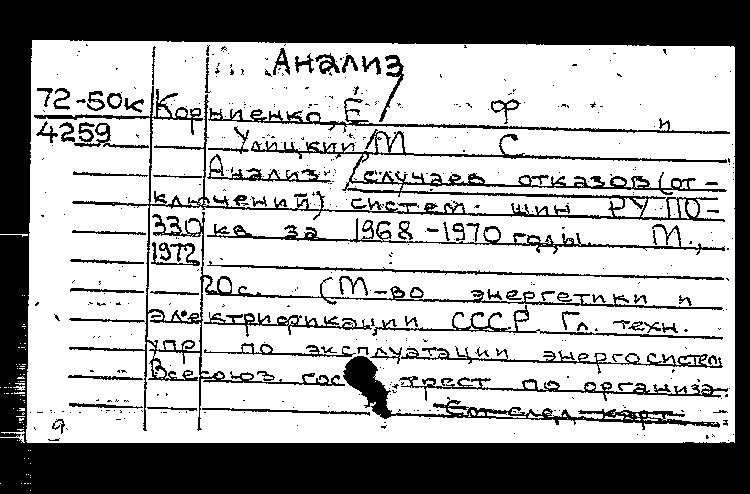 Анализ
72-50к Корниенко, Е Ф и
4259 Улицкий М С
Анализ случаев отказов (от-
ключений) систем шин РУ 110-
330 кв за 1968-1970 годы. М.,
1972
20с. (М-во энергетики и
электрификации СССР. Гл. техн.
упр. по эксплуатации энергосистем
Всесоюз. гос трест по организа-
См след карт
9